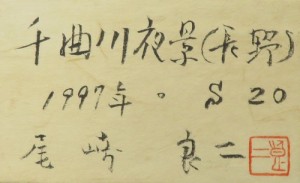 千曲川夜景(長野)
1997年。 S 20
尾崎 良二